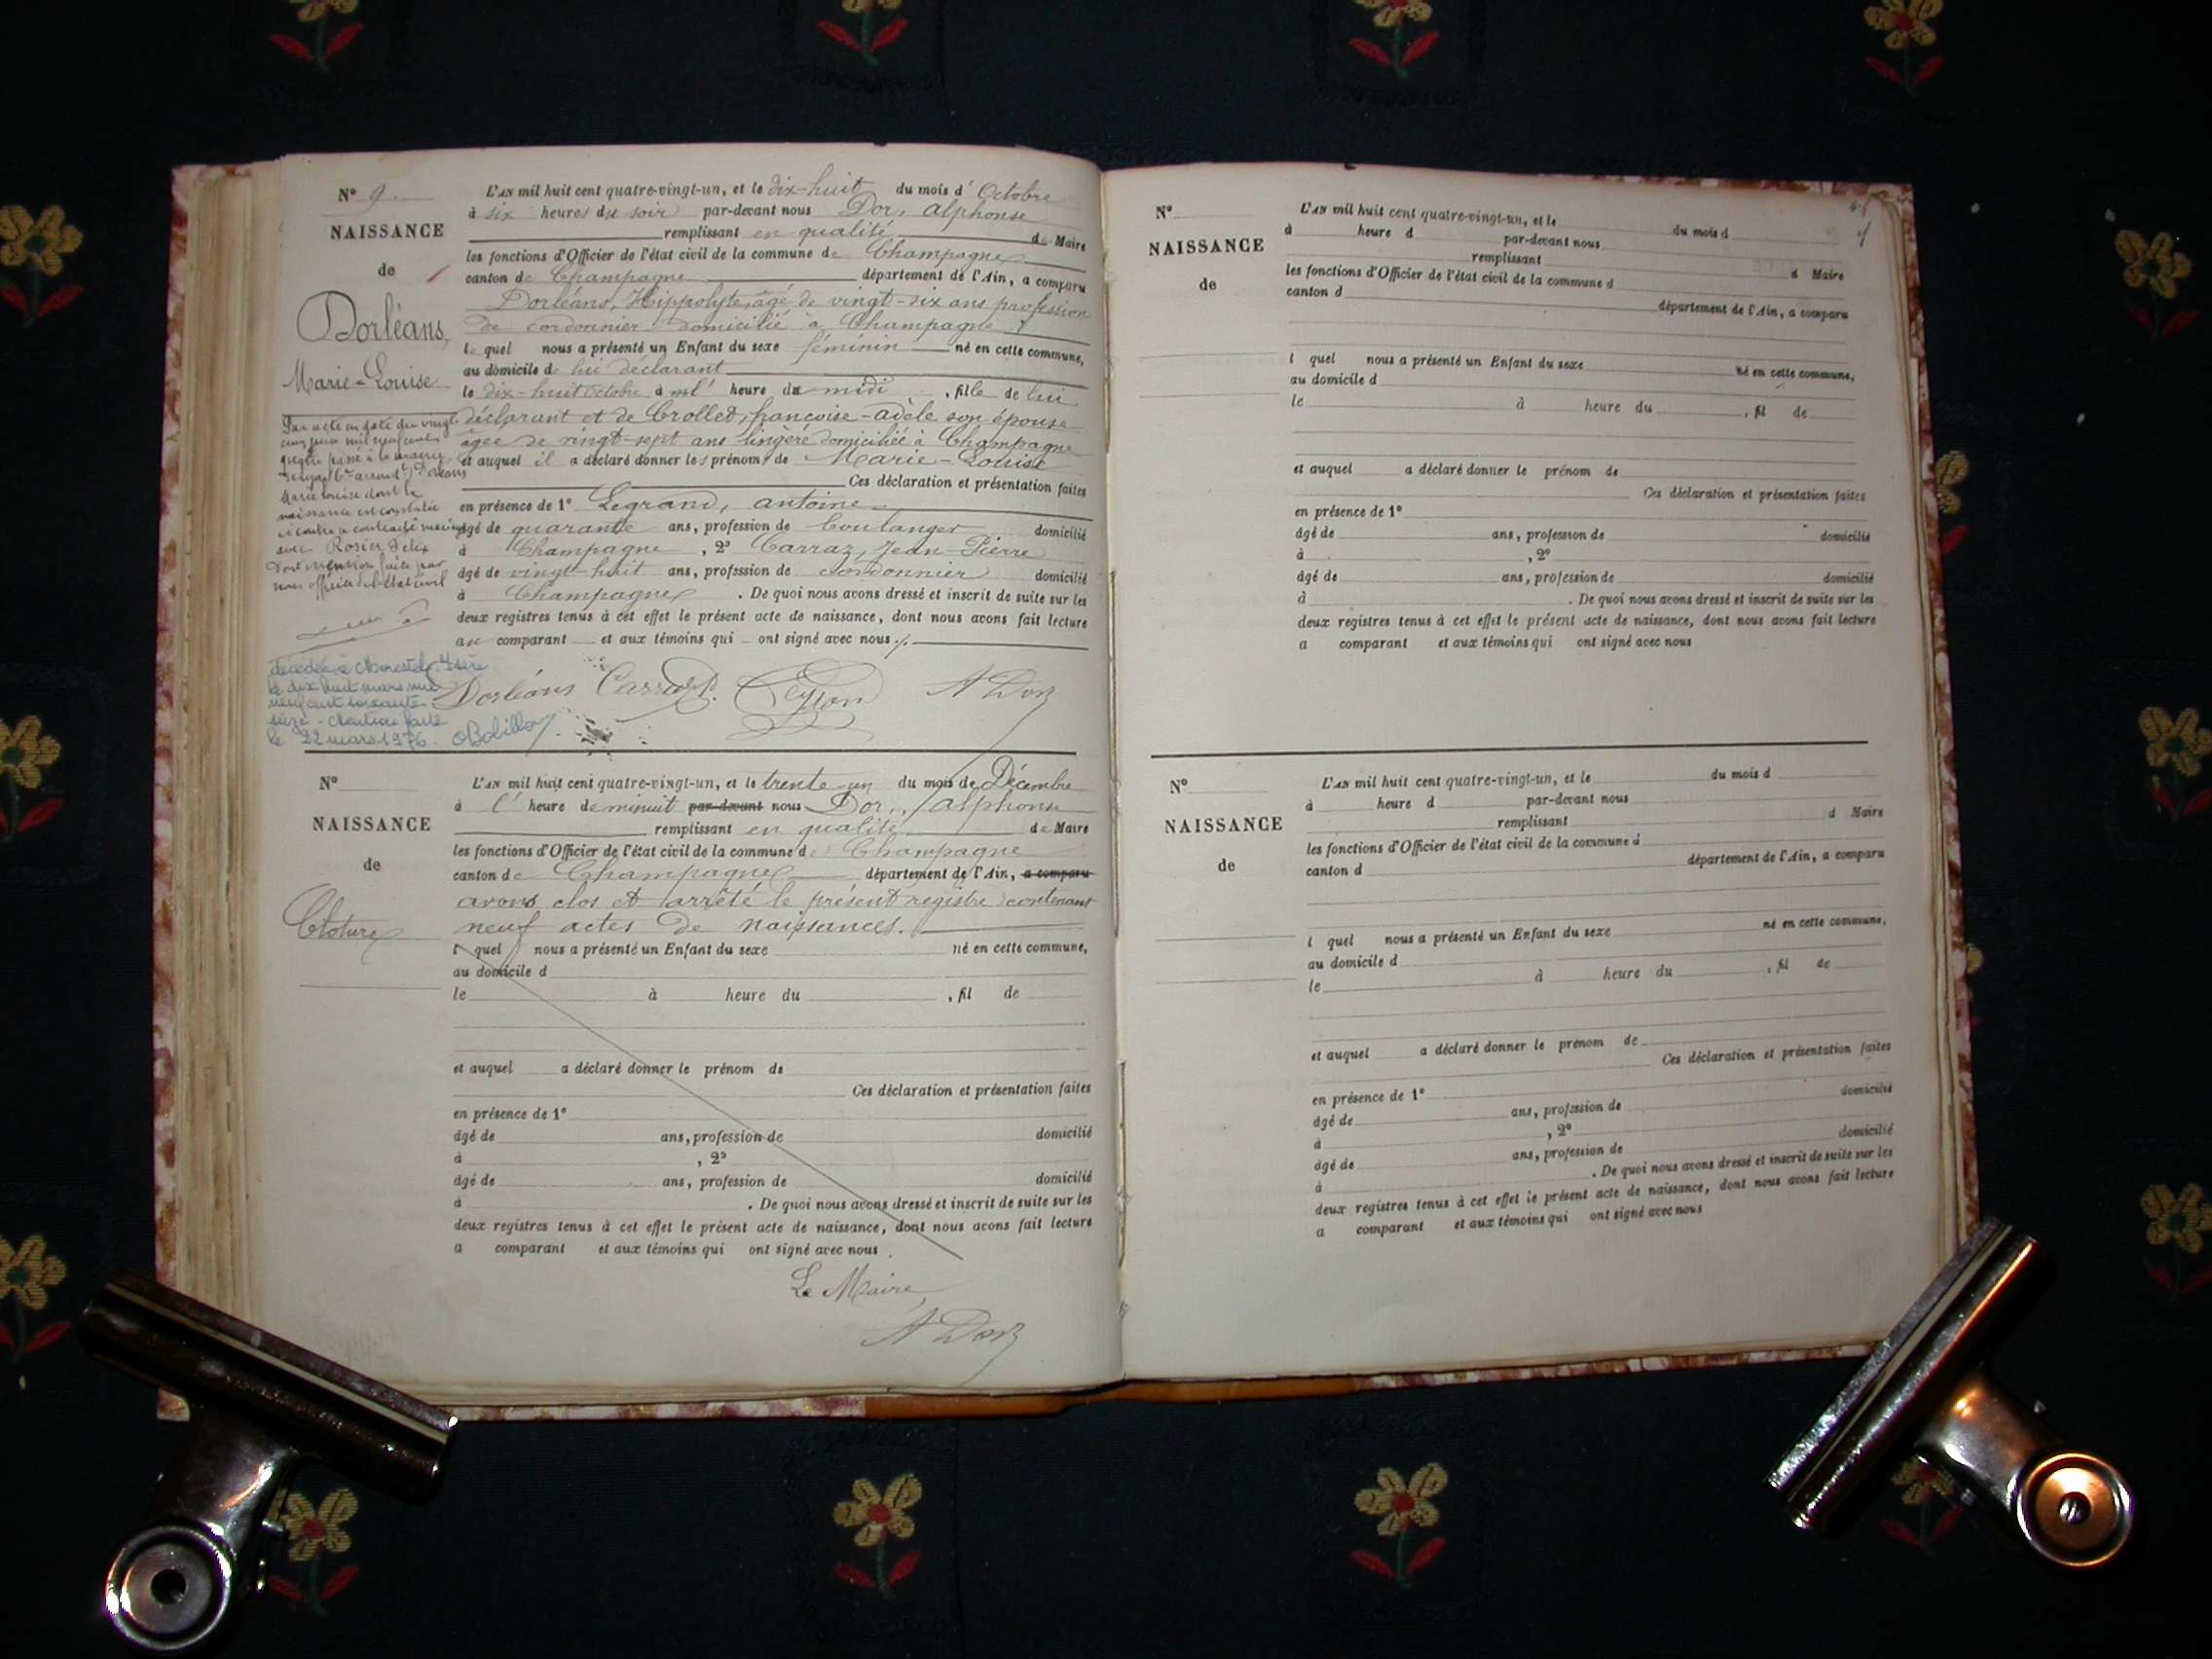 N° 9
NAISSANCE
de
Dorléans,
Marie-Louise
L'AN mil huit cent quatre-vingt-un, et le dix-huit du mois d' Octobre
à six heures du soir par-devant nous Dor, alphonse
remplissant en qualité de Maire
les fonctions d'Officier de l'état civil de la commune de Champagne
canton de Champagne département de l'Ain, a comparu
Dorléans, Hippolyte, âgé de vingt-six ans profession
de cordonnier domicilié à Champagne
le quel nous a présenté un Enfant du sexe féminin né en cette commune,
au domicile de lui déclarant
le dix-huit octobre à heure de midi, fille de lui
déclarant et de Crollet, françoise-adèle son épouse
âgée de vingt-sept ans lingère domiciliée à Champagne
et auquel il a déclaré donner les prénoms de Marie-Louise
Ces déclaration et présentation faites
en présence de 1° Legrand, antoine
âgé de quarante ans, profession de boulanger domicilié
à Champagne, 2° Carraz, Jean-Pierre
âgé de vingt-huit ans, profession de cordonnier domicilié
à Champagne. De quoi nous avons dressé et inscrit de suite sur les
deux registres tenus à cet effet le présent acte de naissance, dont nous avons fait lecture
au comparant et aux témoins qui ont signé avec nous
Par acte en date du vingt
cinq mil neuf cent
passé à la mairie
Dorléans
Marie Louise dont la
naissance est constatée
ci contre a contracté mariage
avec Rosier Félix
Dont mention faite par
nous officier de l'état civil
décédée à Morestel Isère
le dix huit mars mil
neuf cent soixante
seize. Mention faite
le 22 mars 1976.
Dorléans Carraz A Dor
N°
NAISSANCE
de
Cloture
L'AN mil huit cent quatre-vingt-un, et le trente un du mois de Décembre
à l' heure de minuit par-devant nous Dor, alphonse
remplissant en qualité de Maire
les fonctions d'Officier de l'état civil de la commune de Champagne
canton de Champagne département de l'Ain, a comparu
avons clos et arrêté le présent registre contenant
neuf actes de naissances.
l quel nous a présenté un Enfant du sexe né en cette commune,
au domicile d
le à heure du , fil de
et auquel a déclaré donner le prénom de
Ces déclaration et présentation faites
en présence de 1°
âgé de ans, profession de domicilié
à , 2°
âgé de ans, profession de domicilié
à . De quoi nous avons dressé et inscrit de suite sur les
deux registres tenus à cet effet le présent acte de naissance, dont nous avons fait lecture
a comparant et aux témoins qui ont signé avec nous
Le Maire,
A Dor
N°
NAISSANCE
de
L'AN mil huit cent quatre-vingt-un, et le du mois d
à heure d par-devant nous
remplissant d Maire
les fonctions d'Officier de l'état civil de la commune d
canton d département de l'Ain, a comparu
l quel nous a présenté un Enfant du sexe né en cette commune,
au domicile d
le à heure du , fil de
et auquel a déclaré donner le prénom de
Ces déclaration et présentation faites
en présence de 1°
âgé de ans, profession de domicilié
à , 2°
âgé de ans, profession de domicilié
à . De quoi nous avons dressé et inscrit de suite sur les
deux registres tenus à cet effet le présent acte de naissance, dont nous avons fait lecture
a comparant et aux témoins qui ont signé avec nous
N°
NAISSANCE
de
L'AN mil huit cent quatre-vingt-un, et le du mois d
à heure d par-devant nous
remplissant d Maire
les fonctions d'Officier de l'état civil de la commune d
canton d département de l'Ain, a comparu
l quel nous a présenté un Enfant du sexe né en cette commune,
au domicile d
le à heure du , fil de
et auquel a déclaré donner le prénom de
Ces déclaration et présentation faites
en présence de 1°
âgé de ans, profession de domicilié
à , 2°
âgé de ans, profession de domicilié
à . De quoi nous avons dressé et inscrit de suite sur les
deux registres tenus à cet effet le présent acte de naissance, dont nous avons fait lecture
a comparant et aux témoins qui ont signé avec nous